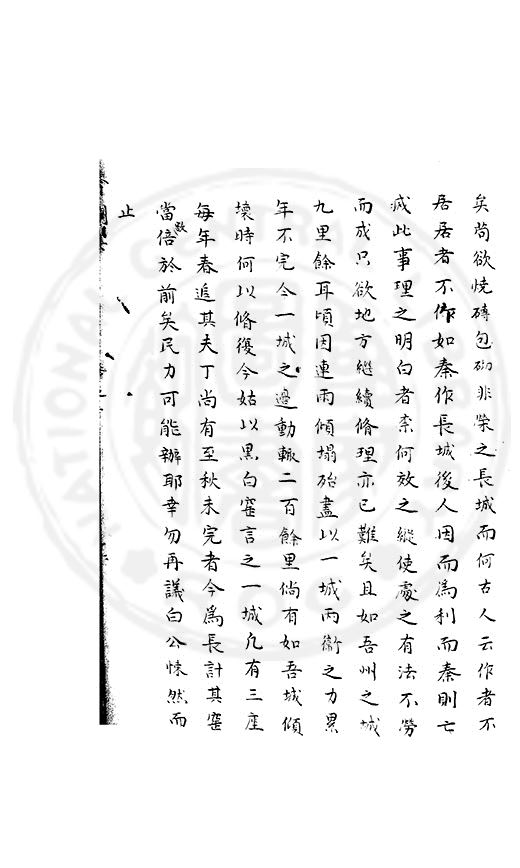 矣苟欲燒磚包砌非築之長城而何古人云作者不
居居者不作如秦作長城後人因而為利而秦則亡
或此事理之明白者柰何效之縱使處之有法不勞
而成只欲地方繼續脩理亦已難矣且如吾州之城
九里餘耳頃因連雨傾塌殆盡以一城兩衛之力累
年不完今一城之邊動輒二百餘里倘有如吾城傾
壞時何以脩復今姑以黑白窰言之一城凡有三座
每年春追其夫丁尚有至秋未完者今為長計其窰
當數倍於前矣民力可能辦耶幸勿再議白公悚然而
止